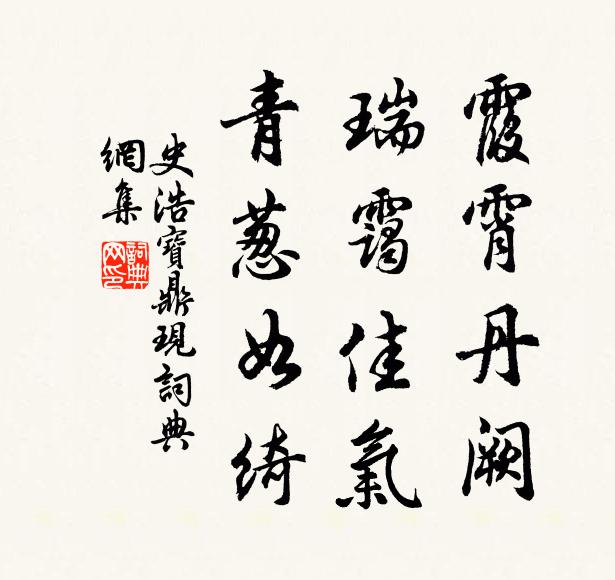 霞霄丹阙
瑞霭佳氣
青葱如綺
史浩寶鼎現詞典
網集
詞典
网印